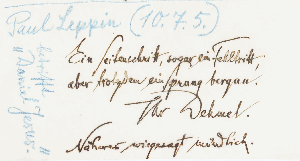 Paul Leppin (10. 7. 5.)
betrifft
"Daniel Jesus."
Ein Seitenschritt, sogar ein Fehltritt,
aber trotzdem ein Sprung bergan.
Ihr Dehmel.
Näheres mündlich.